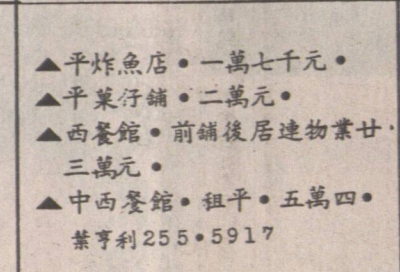 ▲平炸魚店•一萬七千元•
▲平菓仔舖•二萬元•
▲西餐館•前舖後居連物業廿
三萬元•
▲中西餐館•租平•五萬四•
葉亨利255•5917